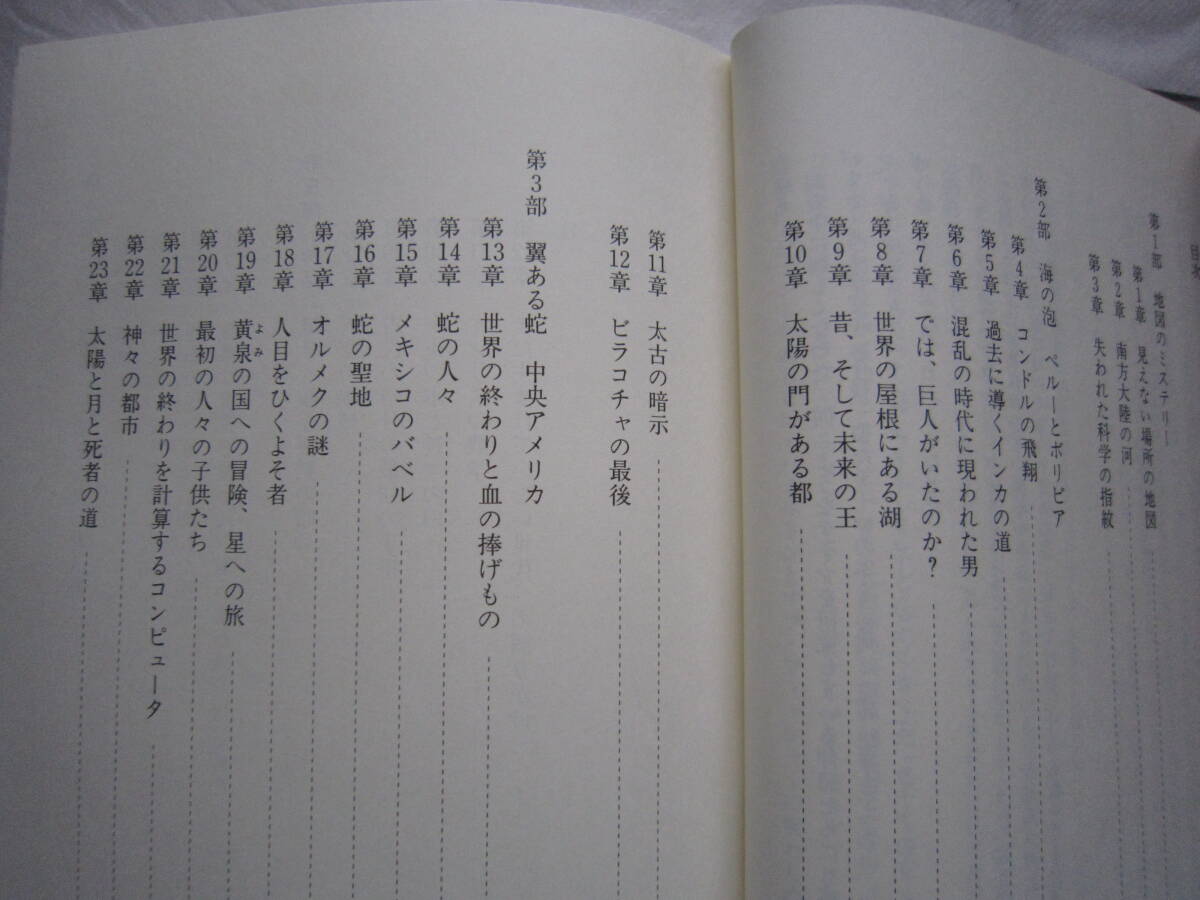 目次
第1部　地図のミステリー
第1章　見えない場所の地図
第2章　南方大陸の河
第3章　失われた科学の指紋
第2部　海の泡　ペルーとボリビア
第4章　コンドルの飛翔
第5章　過去に導くインカの道
第6章　混乱の時代に現われた男
第7章　では、巨人がいたのか？
第8章　世界の屋根にある湖
第9章　昔、そして未来の王
第10章　太陽の門がある都
第11章　太古の暗示
第12章　ビラコチャの最後
第3部　翼ある蛇　中央アメリカ
第13章　世界の終わりと血の捧げもの
第14章　蛇の人々
第15章　メキシコのバベル
第16章　蛇の聖地
第17章　オルメクの謎
第18章　人目をひくよそ者
第19章　黄泉の国への冒険、星への旅
よみ
第20章　最初の人々の子供たち
第21章　世界の終わりを計算するコンピュータ
第22章　神々の都市
第23章　太陽と月と死者の道